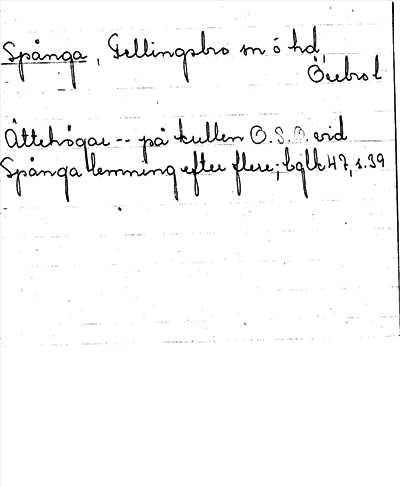 Spånga, Fellingsbro sn o hd,
Örebro l
Ättehögar -- på kullen O.S.O. vid
Spånga lemning efter flere; bglk 47, s. 39